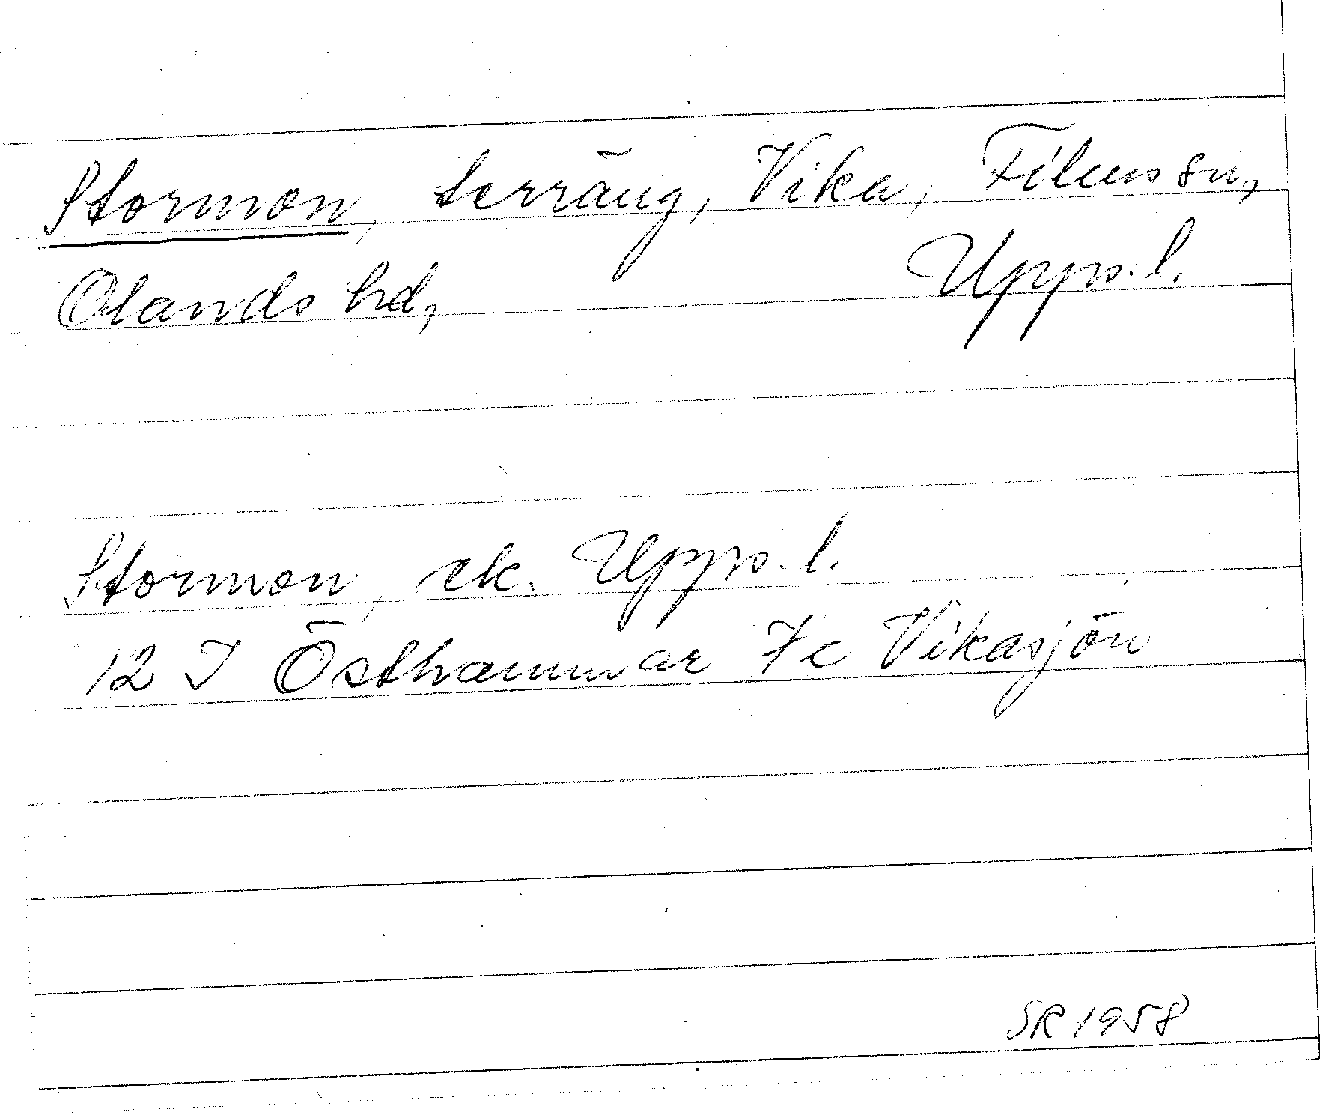 Stormon, terräng, Vika, Films sn,
Olands hd, Upps. l.
Stormon, ek. Upps. l.
12 I Östhammar 7c Vikasjön
SR 1958